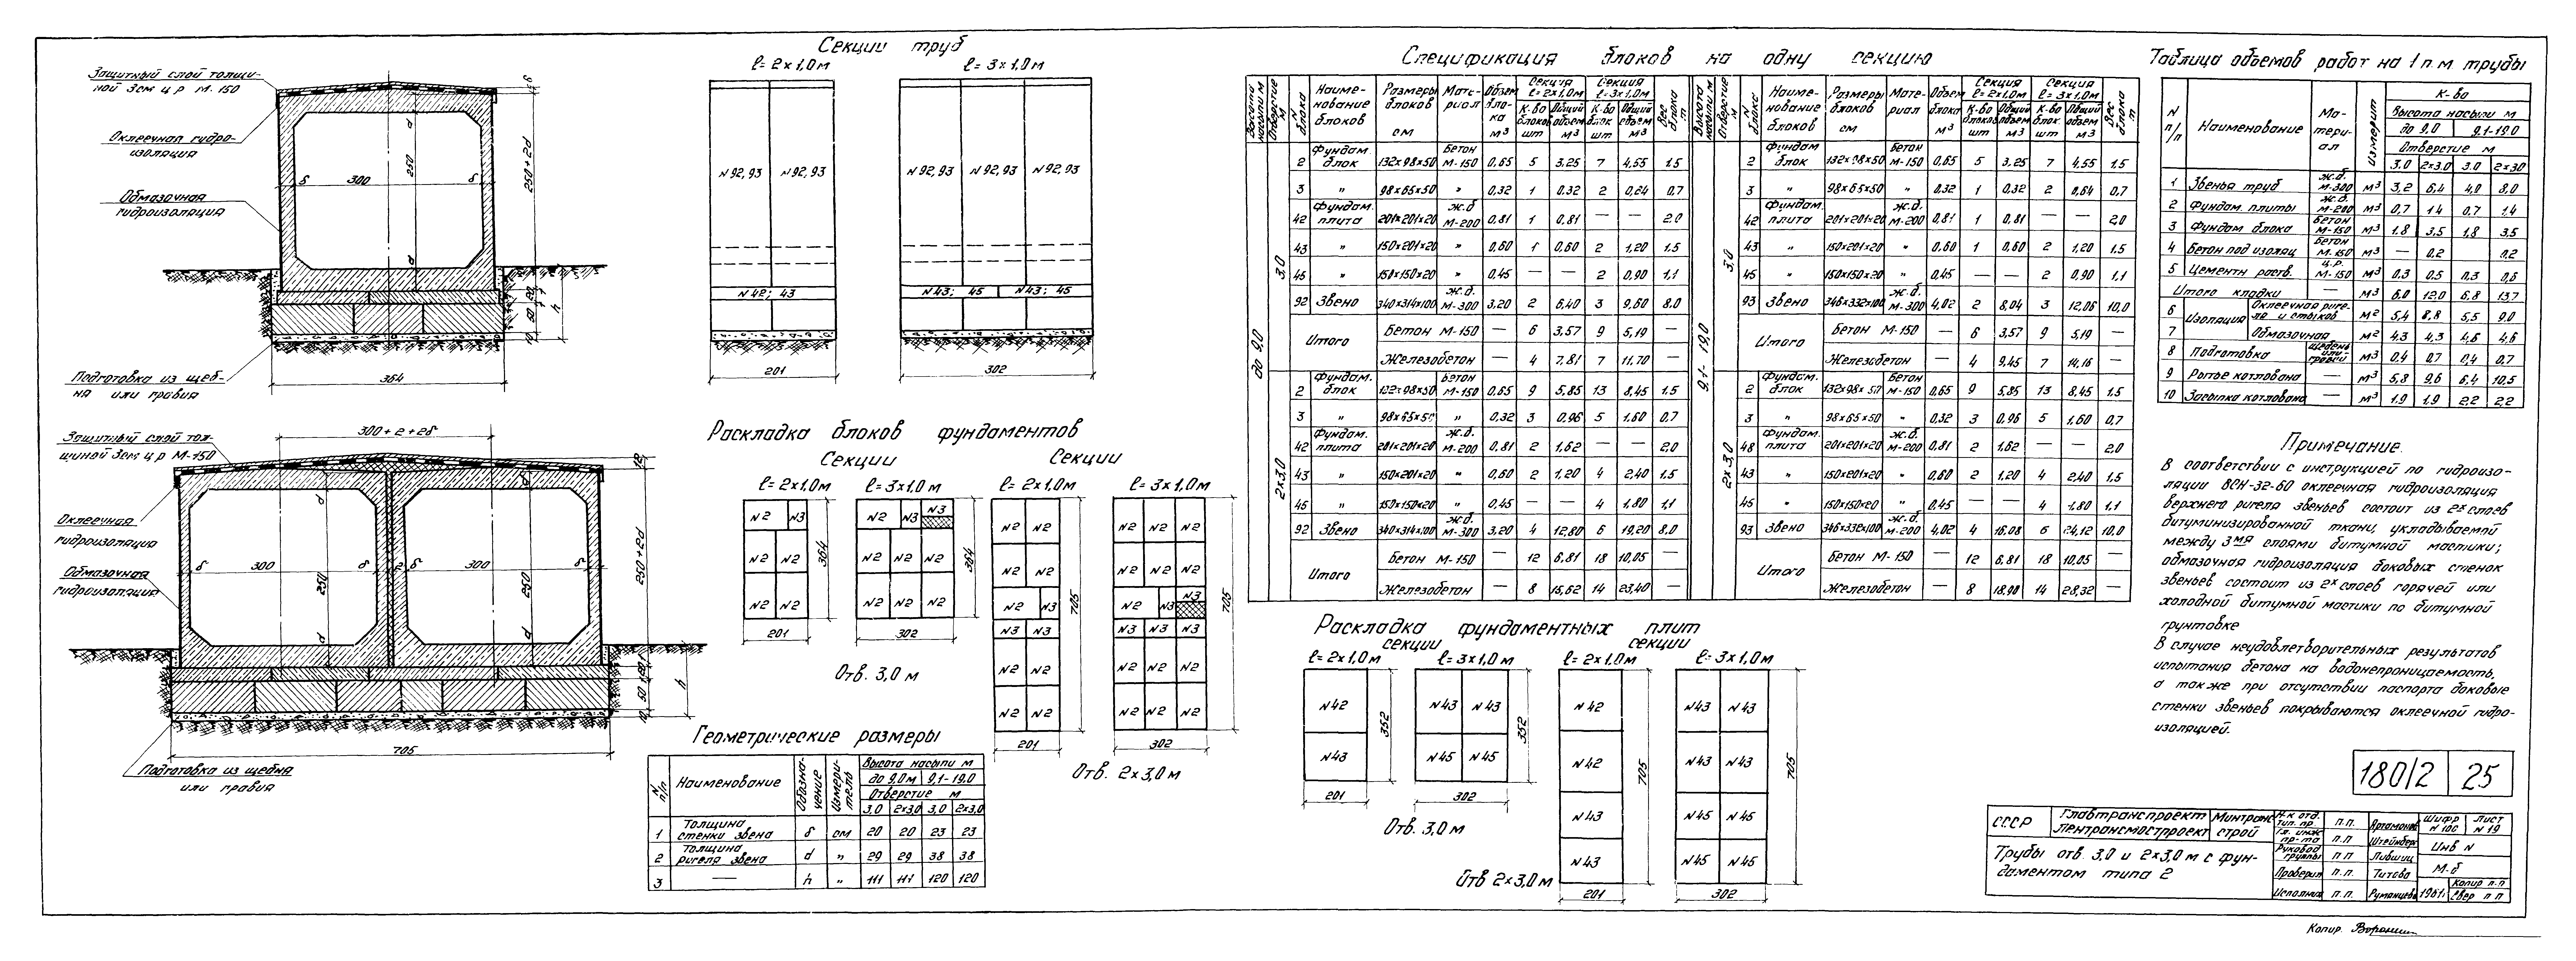 Секции труб
ℓ= 2×1,0м
ℓ= 3×1,0м
Защитный слой толщи-
ной 3см ц.р. М-150
Оклеечная гидро-
изоляция
Обмазочная
гидроизоляция
Подготовка из щеб-
ня или гравия
300
250
δ
d
250+2d
h
364
N92,93 N92,93
N92,93 N92,93 N92,93
N42; 43
N43; 45 N43; 45
201
302
Защитный слой тол-
щиной 3см ц.р М-150
Оклеечная
гидроизоляция
Обмазочная
гидроизоляция
Подготовка из щебня
или гравия
300+2+2δ
300
300
250
250
250+2d
h
705
Раскладка блоков фундаментов
Секции
Секции
ℓ= 2×1,0м
ℓ= 3×1,0м
ℓ= 2×1,0м
ℓ= 3×1,0м
N2 N3
N2 N3 N3
N2 N2
N2 N2 N2
364
364
705
705
201
302
201
302
Отв. 3,0м
Отв. 2×3,0м
Геометрические размеры
N п/п
Наименование
Обозна-
чение
Измери-
тель
Высота насыпи м
до 9,0м 9,1-19,0
Отверстие м
3,0 2×3,0 3,0 2×3,0
1 Толщина стенки звена δ см 20 20 23 23
2 Толщина ригеля звена d " 29 29 38 38
3 — h " 111 111 120 120
Спецификация блоков на одну секцию
Высота насыпи м
Отверстие м
N блока
Наиме-
нование
блоков
Размеры
блоков
см
Мате-
риал
Объем
бло-
ка
м³
Секция
ℓ=2×1,0м
Секция
ℓ=3×1,0м
К-во
блоков
шт
Общий
объем
м³
Вес
блока
т
до 9,0
3,0
2 Фундам. блок 132×98×50 Бетон М-150 0,65 5 3,25 7 4,55 1,5
3 " 98×65×50 " 0,32 1 0,32 2 0,64 0,7
42 Фундам. плита 201×201×20 ж.б М-200 0,81 1 0,81 — — 2,0
43 " 150×201×20 " 0,60 1 0,60 2 1,20 1,5
45 " 150×150×20 " 0,45 — — 2 0,90 1,1
92 Звено 340×314×100 ж.б. М-300 3,20 2 6,40 3 9,60 8,0
Итого
Бетон М-150 — 6 3,57 9 5,19 —
Железобетон — 4 7,81 7 11,70 —
2×3,0
2 Фундам. блок 132×98×50 Бетон М-150 0,65 9 5,85 13 8,45 1,5
3 " 98×65×50 " 0,32 3 0,96 5 1,60 0,7
42 Фундам. плита 201×201×20 ж.б. М-200 0,81 2 1,62 — — 2,0
43 " 150×201×20 " 0,60 2 1,20 4 2,40 1,5
45 " 150×150×20 " 0,45 — — 4 1,80 1,1
92 Звено 340×314×100 ж.б. М-300 3,20 4 12,80 6 19,20 8,0
Итого
Бетон М-150 — 12 6,81 18 10,05 —
Железобетон — 8 15,62 14 23,40 —
9,1-19,0
3,0
2 Фундам блок 132×98×50 Бетон М-150 0,65 5 3,25 7 4,55 1,5
3 " 98×65×50 " 0,32 1 0,32 2 0,64 0,7
42 Фундам. плита 201×201×20 ж.б. М-200 0,81 1 0,81 — — 2,0
43 " 150×201×20 " 0,60 1 0,60 2 1,20 1,5
45 " 150×150×20 " 0,45 — — 2 0,90 1,1
93 Звено 346×332×100 ж.б. М-300 4,02 2 8,04 3 12,06 10,0
Итого
Бетон М-150 — 6 3,57 9 5,19 —
Железобетон — 4 9,45 7 14,16 —
2×3,0
2 Фундам. блок 132×98×50 Бетон М-150 0,65 9 5,85 13 8,45 1,5
3 " 98×65×50 " 0,32 3 0,96 5 1,60 0,7
48 Фундам. плита 201×201×20 ж.б. М-200 0,81 2 1,62 — — 2,0
43 " 150×201×20 " 0,60 2 1,20 4 2,40 1,5
45 " 150×150×20 " 0,45 — — 4 1,80 1,1
93 Звено 346×332×100 ж.б. М-200 4,02 4 16,08 6 24,12 10,0
Итого
Бетон М-150 — 12 6,81 18 10,05 —
Железобетон — 8 18,90 14 28,32 —
Раскладка фундаментных плит
секции
секции
ℓ=2×1,0м
ℓ=3×1,0м
ℓ=2×1,0м
ℓ=3×1,0м
N42
N43
N43 N43
N45 N45
N42
N42
N43
N43
N43 N43
N43 N43
N45 N45
N45 N45
352
352
705
705
201
302
201
302
Отв. 3,0м
Отв 2×3,0м
Таблица объемов работ на 1 п.м трубы
N п/п
Наименование
Ма-
тери-
ал
Измерит
К-во
Высота насыпи м
до 9,0 9,1-19,0
Отверстие м
3,0 2×3,0 3,0 2×3,0
1 Звенья труб ж.б. М-300 м³ 3,2 6,4 4,0 8,0
2 Фундам. плиты ж.б. М-200 м³ 0,7 1,4 0,7 1,4
3 Фундам блока Бетон М-150 м³ 1,8 3,5 1,8 3,5
4 Бетон под изоляц Бетон М-150 м³ — 0,2 0,2
5 Цементн раств. ц.р. М-150 м³ 0,3 0,5 0,3 0,6
Итого кладки — м³ 6,0 12,0 6,8 13,7
6 Изоляция Оклеечная риге-
ля и стыков м² 5,4 8,8 5,5 9,0
7 Обмазочная м² 4,3 4,3 4,6 4,6
8 Подготовка щебень или гравий м³ 0,4 0,7 0,4 0,7
9 Рытье котлована — м³ 5,8 9,6 6,4 10,5
10 Засыпка котлована — м³ 1,9 1,9 2,2 2,2
Примечание.
В соответствии с инструкцией по гидроизо-
ляции ВСН-32-60 оклеечная гидроизоляция
верхнего ригеля звеньев состоит из 2х слоев
битуминизированной ткани, укладываемой
между 3мя слоями битумной мастики;
обмазочная гидроизоляция боковых стенок
звеньев состоит из 2х слоев горячей или
холодной битумной мастики по битумной
грунтовке
В случае неудовлетворительных результатов
испытания бетона на водонепроницаемость,
а также при отсутствии паспорта боковые
стенки звеньев покрываются оклеечной гидро-
изоляцией.
180/2 25
СССР
Главтранспроект
Лентрансмостпроект
Минтранс
строй
Трубы отв. 3,0 и 2×3,0м с фун-
даментом типа 2
Н-к отд. тип. пр. п.п. Артамонов
Гл. инж. пр-та п.п. Штейнберг
Руковод группы п.п Лившиц
Проверил п.п. Титова
Исполнил п.п. Румянцева
Шифр N 100
Лист N 19
Инв N
М-б
1961г.
Копир п.п
Свер п п
Копир. Воронин